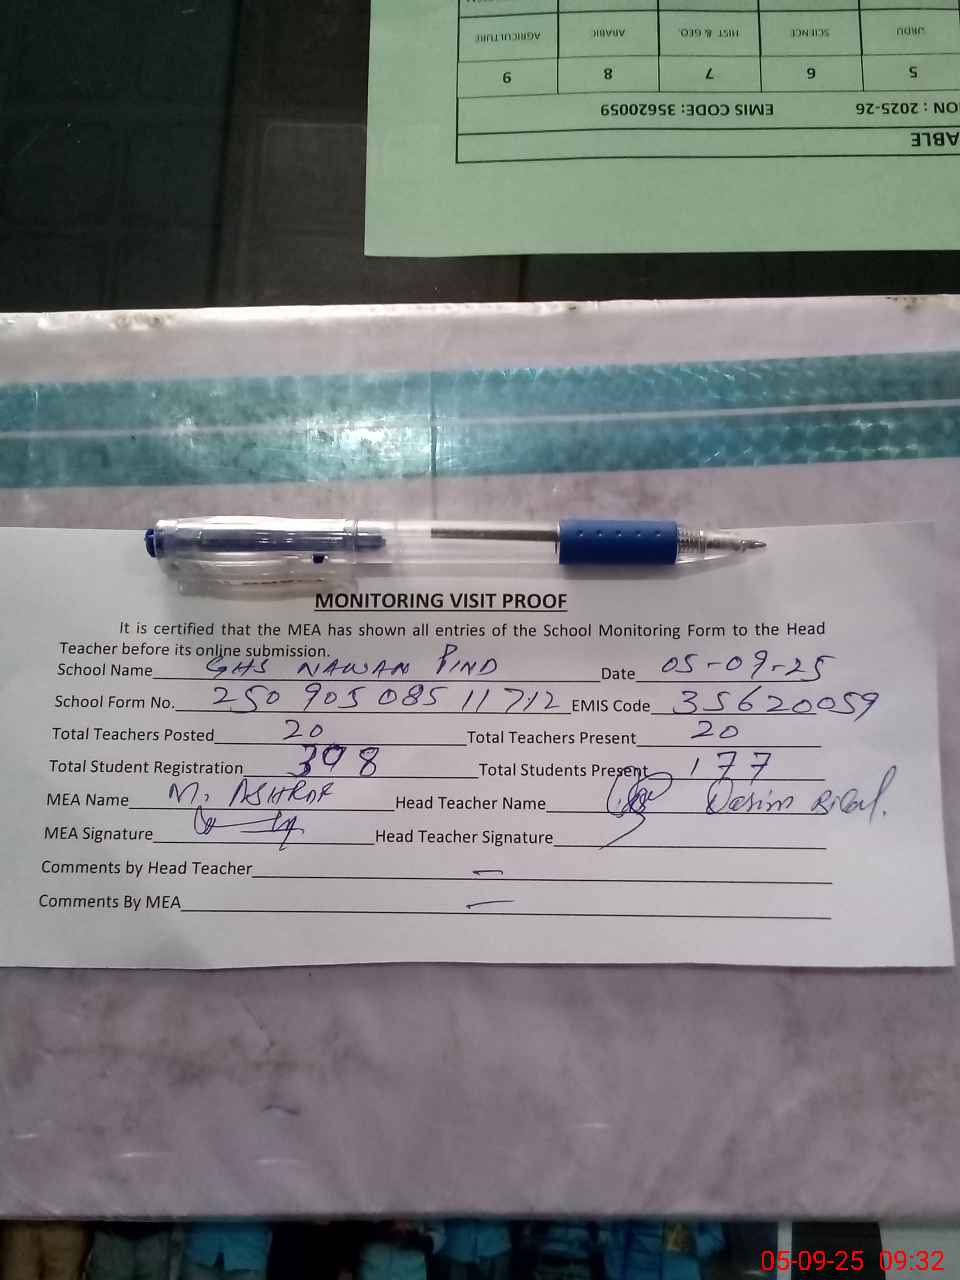 AGRICULTURE ARABIC HIST & GEO. SCIENCE URDU
9 8 7 6 5
EMIS CODE: 35620059 ION : 2025-26
ABLE
MONITORING VISIT PROOF
It is certified that the MEA has shown all entries of the School Monitoring Form to the Head
Teacher before its online submission.
School Name GHS NAWAN PIND Date 05-09-25
School Form No. 250 905 085 11712 EMIS Code 35620059
Total Teachers Posted 20 Total Teachers Present 20
Total Student Registration 398 Total Students Present 177
MEA Name M. ASHRAF Head Teacher Name
MEA Signature Head Teacher Signature
Comments by Head Teacher —
Comments By MEA —
05-09-25 09:32